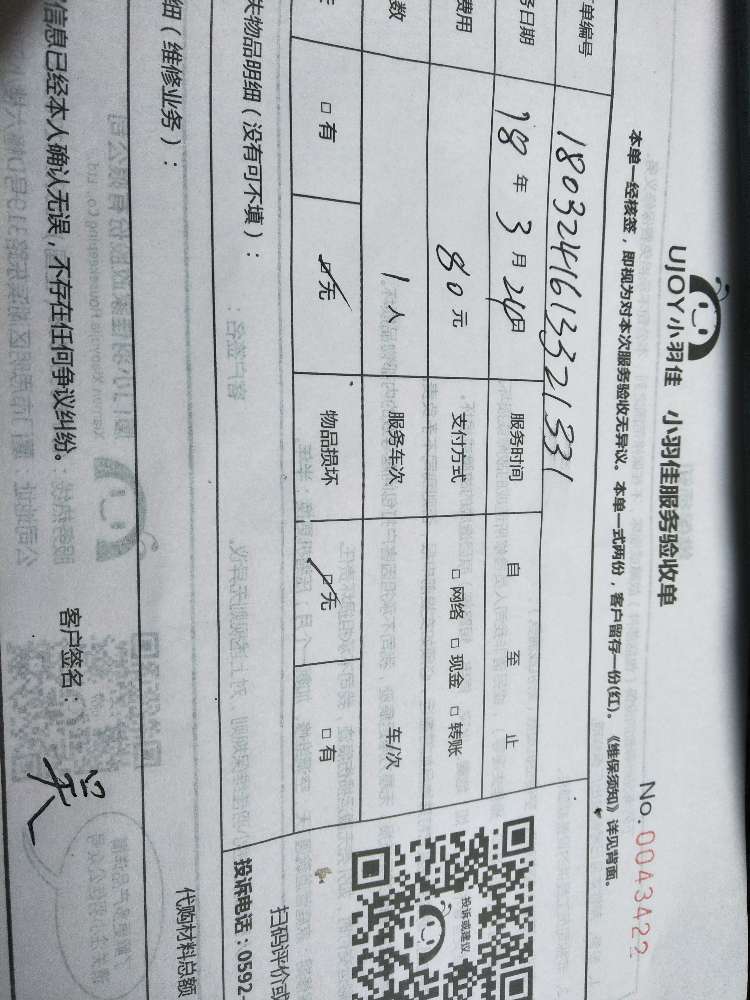 UJOY小羽佳 小羽佳服务验收单
No.0043422
本单一经核签，即视为对本次服务验收无异议。本单一式两份，客户留存一份(红)。《维保须知》详见背面。
单编号 1803241613321331
务日期 18年3月24日 服务时间 自 至 止
费用 80元 支付方式 □网络 □现金 □转账
数 1人 服务车次 车/次
□有 ☑无 物品损坏 ☑无 □有
失物品明细（没有可不填）：
投诉或建议
扫码评价或
投诉电话：0592-
细（维修业务）：
代购材料总额
信息已经本人确认无误，不存在任何争议纠纷。 客户签名：吴